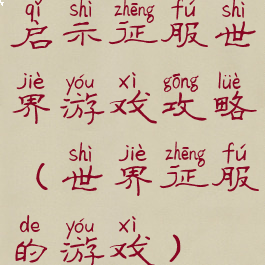 qǐ shì zhēng fú shì
启示征服世
jiè yóu xì gōng lüè
界游戏攻略
shì jiè zhēng fú
（世界征服
de yóu xì
的游戏）